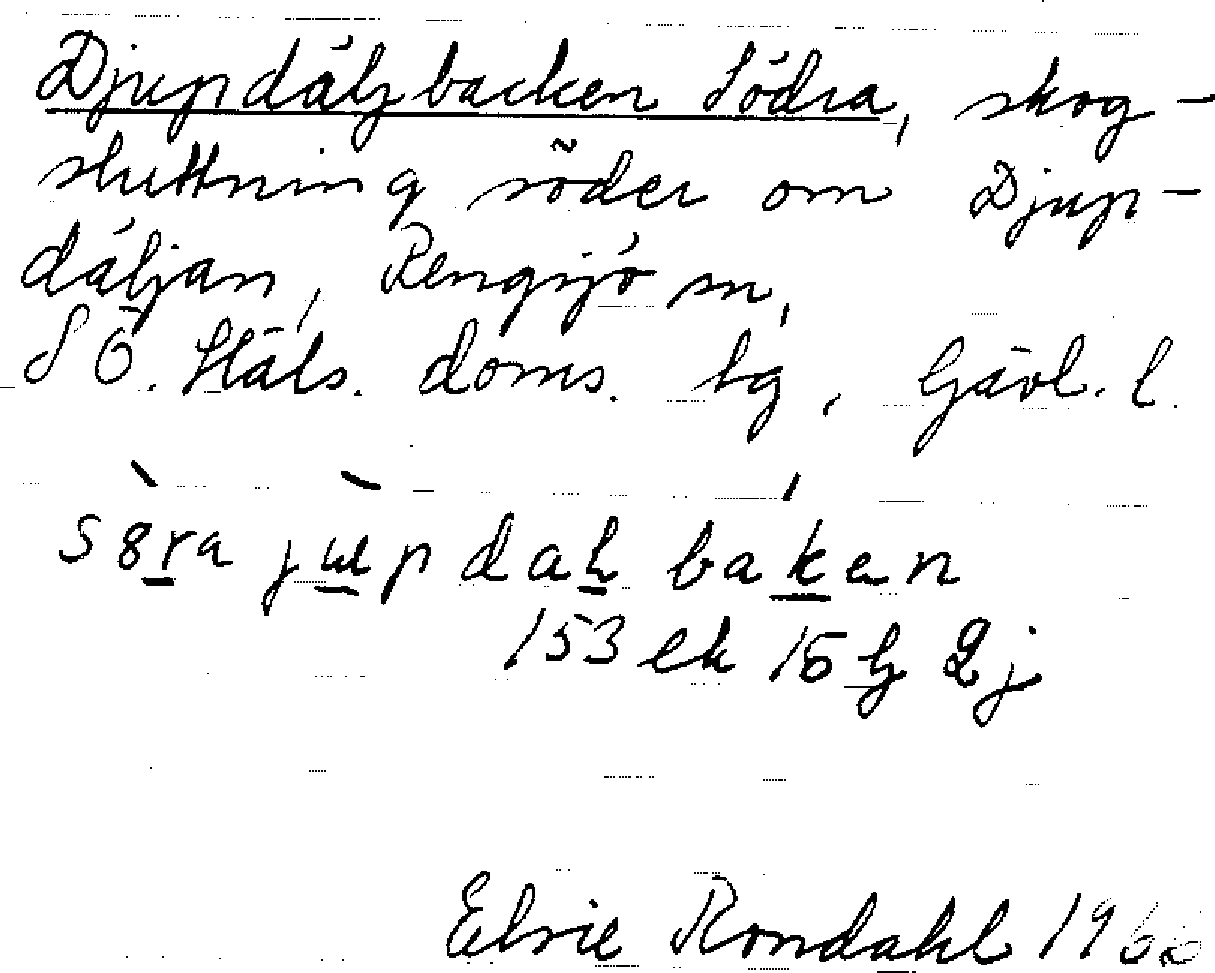 Djupdäljbacken Södra, skog-
sluttning söder om Djup-
däljan, Rengsjö sn,
SÖ. Häls. doms. tg, Gävl. l.
söra jupdaḷbaken
153 ek 15 lj 2j
Elvie Rondahl 1966